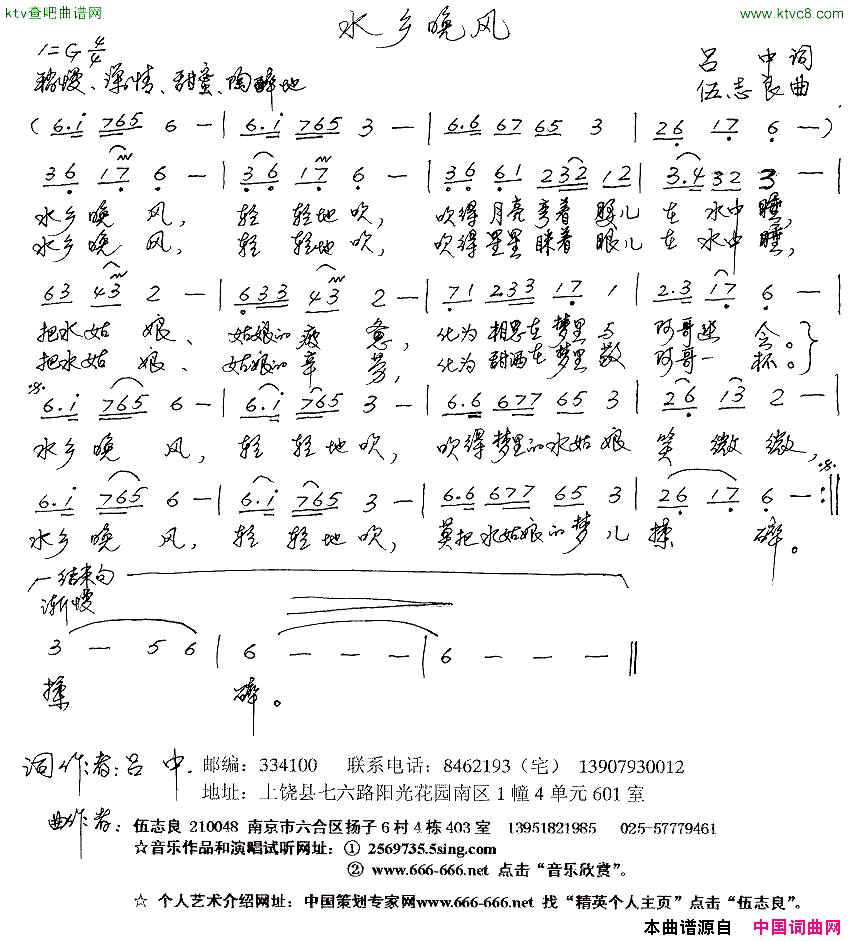 ktv查吧曲谱网
www.ktvc8.com
水乡晚风
1=G 4/4
稍慢、深情、甜蜜、陶醉地
吕 中 词
伍志良 曲
(6.i 765 6 - | 6.i 765 3 - | 6.6 67 65 3 | 26 17 6 -)
36 17 6 - | 36 17 6 - | 36 61 232 12 | 3.4 32 3 - |
水乡晚 风, 轻 轻地吹, 吹得月亮弯着腰儿在水中睡,
水乡晚 风, 轻 轻地吹, 吹得星星眯着眼儿在水中睡,
63 43 2 - | 633 43 2 - | 71 233 17 1 | 2.3 17 6 - |
把水姑 娘、 姑娘的疲 惫, 化为相思在梦里与 阿哥逆 会。
把水姑 娘、 姑娘的辛 劳, 化为甜酒在梦里敬 阿哥一 杯。
6.i 765 6 - | 6.i 765 3 - | 6.6 677 65 3 | 26 13 2 - |
水乡晚 风, 轻 轻地吹, 吹得梦里的水姑娘 笑 微微,
6.i 765 6 - | 6.i 765 3 - | 6.6 677 65 3 | 26 17 6 - :||
水乡晚 风, 轻 轻地吹, 莫把水姑娘的梦儿 揉 碎。
结束句
渐慢
3 - 5 6 | 6 - - - | 6 - - - ||
揉 碎。
词作者:吕 中. 邮编:334100 联系电话:8462193(宅) 13907930012
地址:上饶县七六路阳光花园南区1幢4单元601室
曲作者: 伍志良 210048 南京市六合区扬子6村4栋403室 13951821985 025-57779461
☆音乐作品和演唱试听网址:① 2569735.5sing.com
② www.666-666.net 点击“音乐欣赏”。
☆ 个人艺术介绍网址:中国策划专家网www.666-666.net 找“精英个人主页”点击“伍志良”。
本曲谱源自 中国词曲网